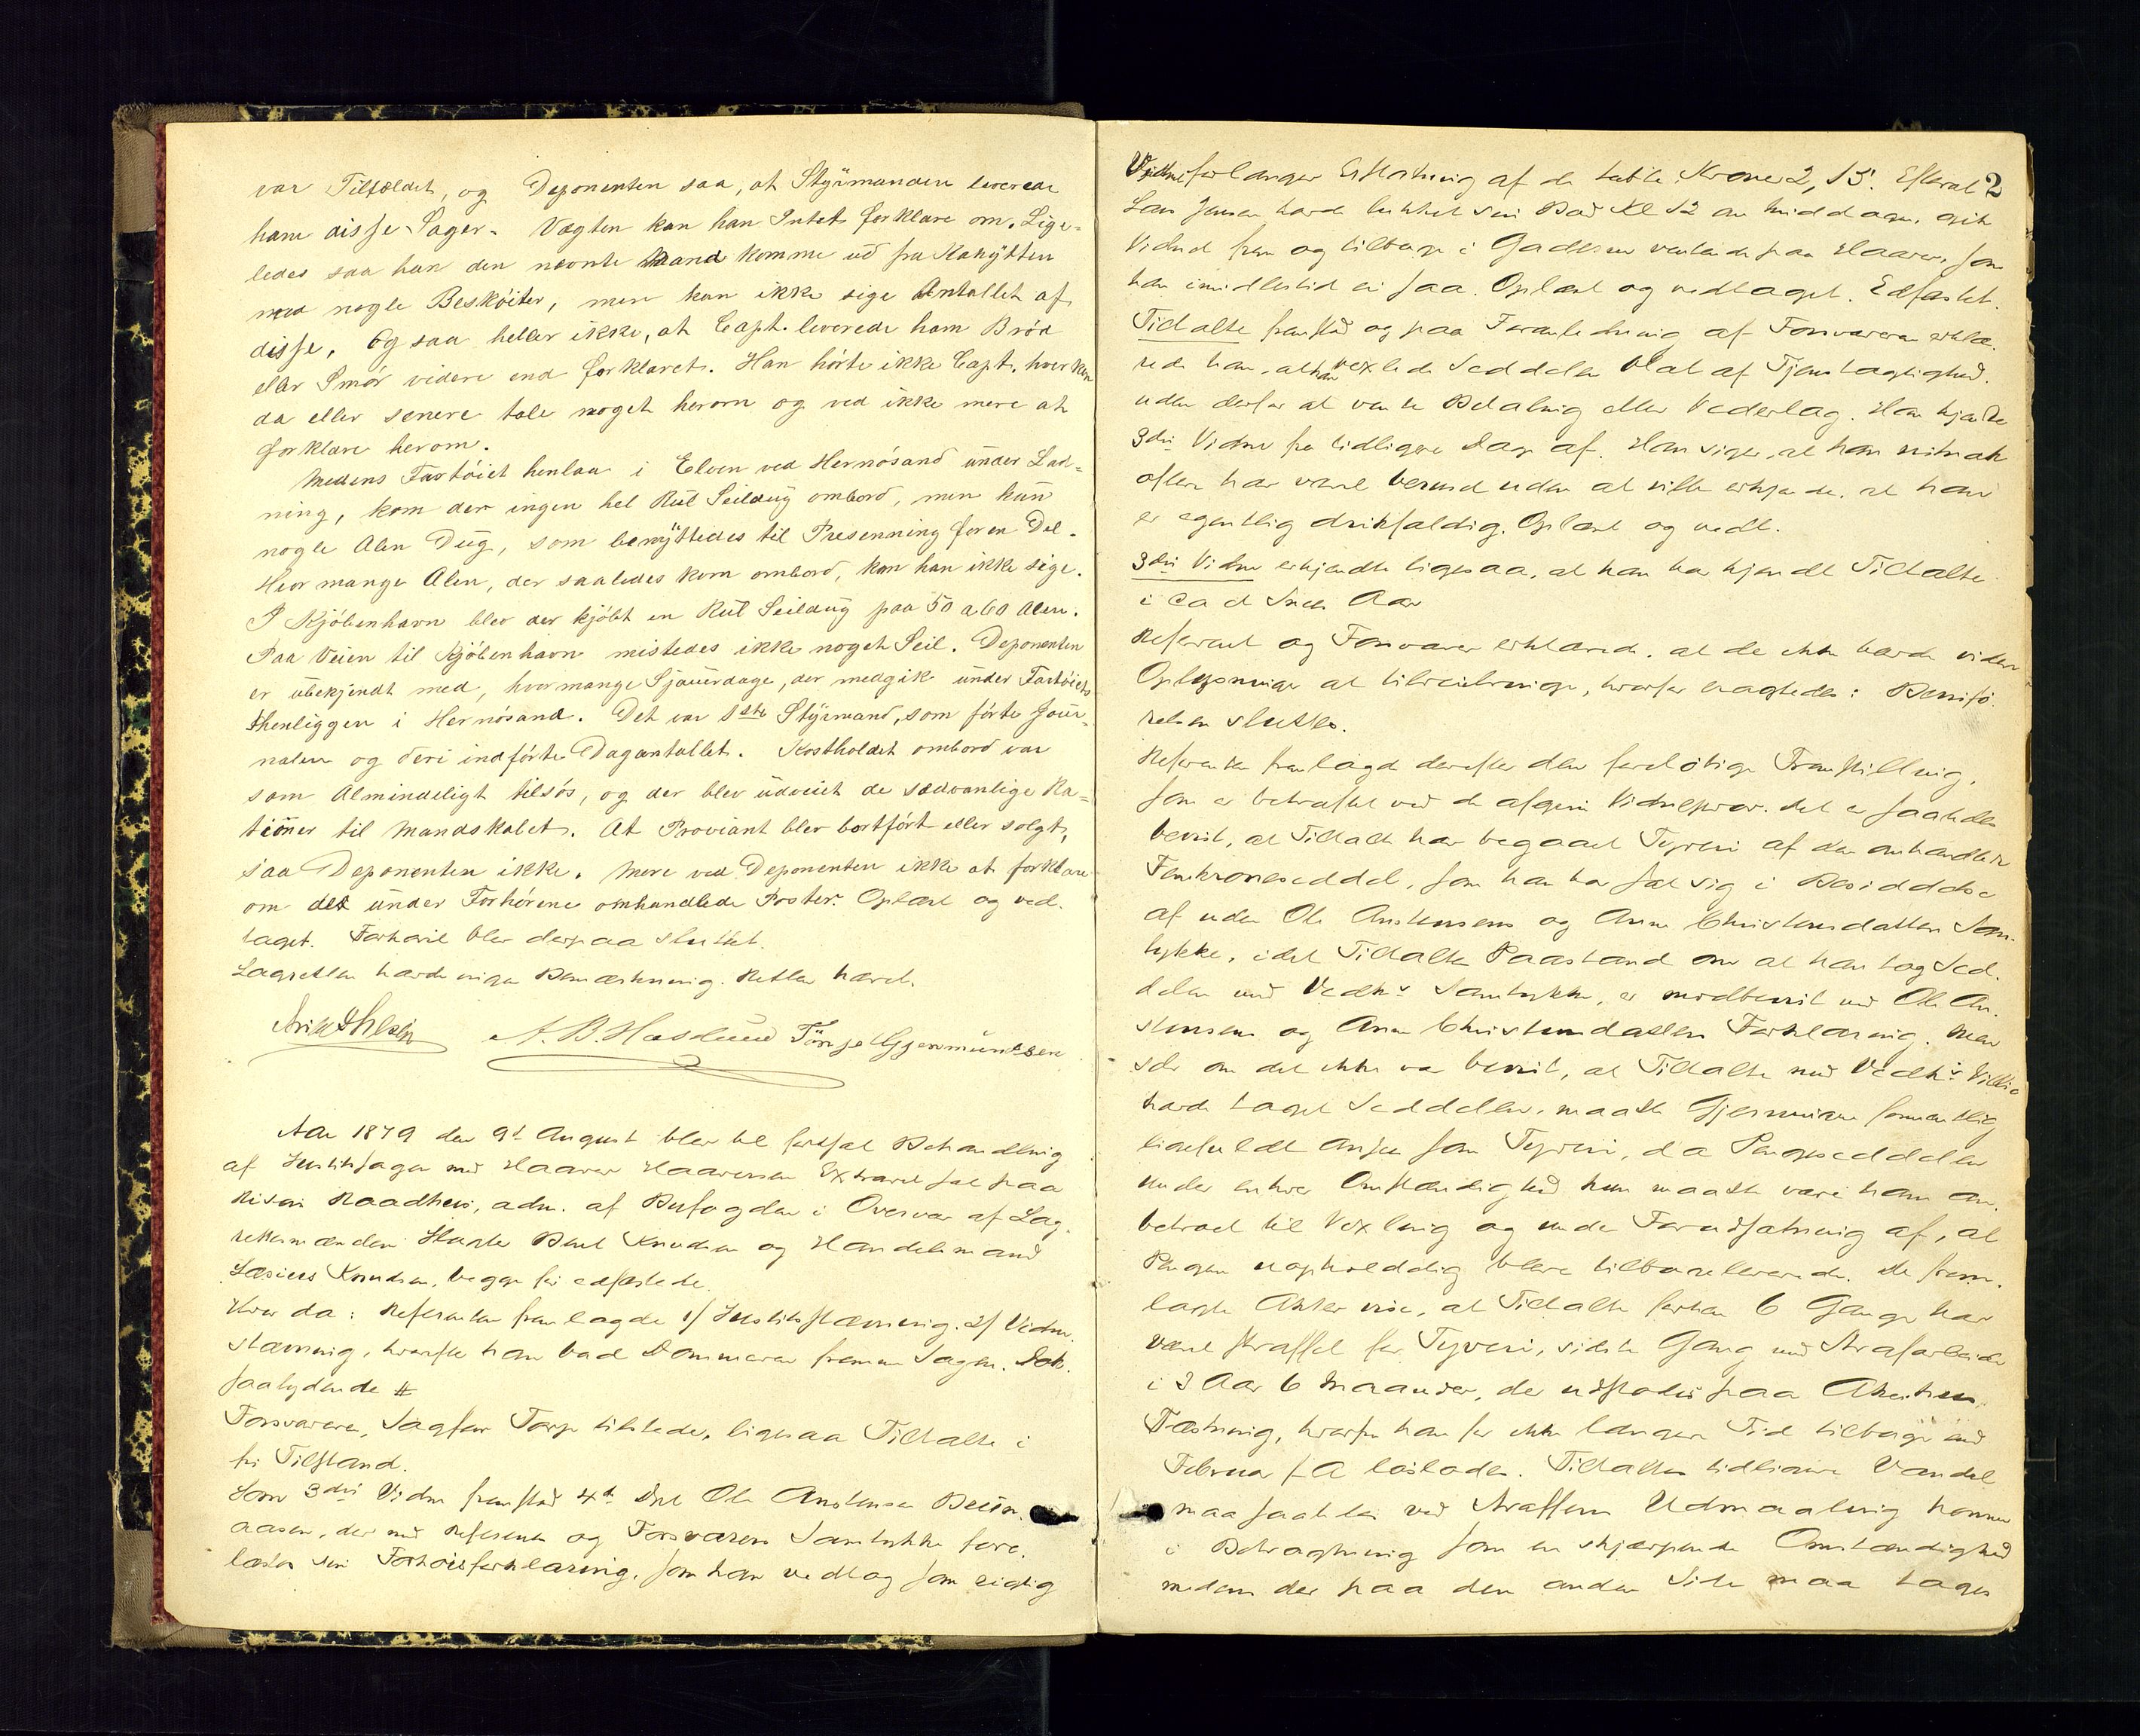 var Tilfældet, og Deponenten saa, at Styrmanden leverede
ham disse Sager. Vægten kan han Intet forklare om. Lige-
ledes saa han den nævnte Mand komme ud fra Kahytten
med nogle Beskøiter, men kan ikke sige Antallet af
disse. Og saa heller ikke, at Capt. leverede ham Brød
eller Smør videre end forklaret. Han hørte ikke Capt. hverken
da eller senere tale noget herom og ved ikke mere at
forklare herom.
Medens Fartøiet henlaa i Elven ved Hernøsand under Lad-
ning, kom der ingen hel Rul Seildug ombord, men kun
nogle Alen Dug, som benyttedes til Presenning for en Del.
Hvor mange Alen, der saaledes kom ombord, kan han ikke sige.
I Kjøbenhavn blev der kjøbt en Rul Seildug paa 50 a 60 Alen.
Paa Veien til Kjøbenhavn mistedes ikke noget Seil. Deponenten
er ubekjendt med, hvormange Sjauerdage, der medgik under Fartøiets
henliggen i Hernøsand. Det var 1ste Styrmand, som førte Jour-
nalen og deri indførte Dagantallet. Kostholdet ombord var
som Almindeligt tilsøs, og der blev udveiet de sædvanlige Ra-
tioner til Mandskabet. At Proviant blev bortført eller solgt,
saa Deponenten ikke. Mere ved Deponenten ikke at forklare
om de under Forhørene omhandlede Poster. Oplæst og ved-
taget. Forhøret blev derpaa sluttet.
Lagretten havde ingen Bemærkning. Retten hævet.
A. B. Haslund Tönje Gjermundsen
Aar 1879 den 9d August blev til fortsat Behandling
af Justitssagen mod Haaver Haaversen Extraret sat paa
Risør Raadhus, adm. af Byfogden i Overvær af Lag-
rettesmændene Slagter Knudsen og Handelsmand
Knudsen, begge før edfæstede.
Hvor da: Referenten fremlagde 1/ Justitsstævning. 2/ Vidne-
stævning, hvorefter han bad Dommeren fremme Sagen. Dok.
saalydende #
Forsvareren, Sagfører Torp tilstede, ligesaa Tiltalte i
fri Tilstand.
Som 3die Vidne fremstod 4d Dpt Ole Anstensen
aasen, der med Referenten og Forsvarens Samtykke fore-
læstes sin Forhørsforklaring, som han vedtog som rigtig
2
Vidnet forlanger Erstatning af de tabte Kroner 2,15. Efterat
Lars Jensen havde lukket sin Bod Kl 12 om Middagen, gik
Vidnet frem og tilbage i Gaderne ventende paa Haaver, som
han imidlertid ei saa. Oplæst og vedtaget. Edfæstet.
Tiltalte fremstod og paa Foranledning af Forsvareren erklæ-
rede han, at han vexlede Seddelen blot af Tjenstagtighed
uden derfor at vente Betaling eller Vederlag. Han kjendte
3die Vidne fra tidligere Dage af. Han siger, at han
ofte har været beruset uden at ville erkjende, at han
er egentlig drikfældig. Oplæst og vedt.
3die Vidne erkjendte ligesaa, at han har kjendt Tiltalte
i Aar
Referent og Forsvarer erklærede, at de ikke havde videre
Oplysninger at tilveiebringe, hvorfor eragtedes: Bevisfø-
relsen sluttes.
Referenten fremlagde derefter den foreløbige Fremstilling,
som er bekræftet ved de afgivne Vidneprov. Det er saaledes
bevist, at Tiltalte har begaaet Tyveri af den omhandlede
Femkroneseddel, som han har sat sig i Besiddelse
af uden Ole Anstensens og Anne Christensdatters Sam-
tykke, idet Tiltaltes Paastand om at han tog Sed-
delen med Vedks Samtykke, er modbevist ved Ole An-
stensens og Anne Christensdatters Forklaring. Men
selv om det ikke var bevist, at Tiltalte mod Vedks Villie
havde taget Seddelen, maatte Gjerningen formentlig
ligefuldt ansees som Tyveri, da Pengeseddelen
under enhver Omstændighed kun maatte være ham an-
betroet til Vexling og under Forudsætning af, at
Pengene uopholdelig bleve tilbageleverede. De frem-
lagte Akter vise, at Tiltalte forhen 6 Gange har
været straffet for Tyveri, sidste Gang med Strafarbeide
i 3 Aar 6 Maaneder, der udstodes paa Akershus
Fæstning, hvorfra han for ikke længere Tid tilbage end
Februar f A løslodes. Tiltaltes tidligere Vandel
maa saaledes ved Straffens Udmaaling komme
i Betragtning som en skjærpende Omstændighed
medens der paa den anden Side maa tages